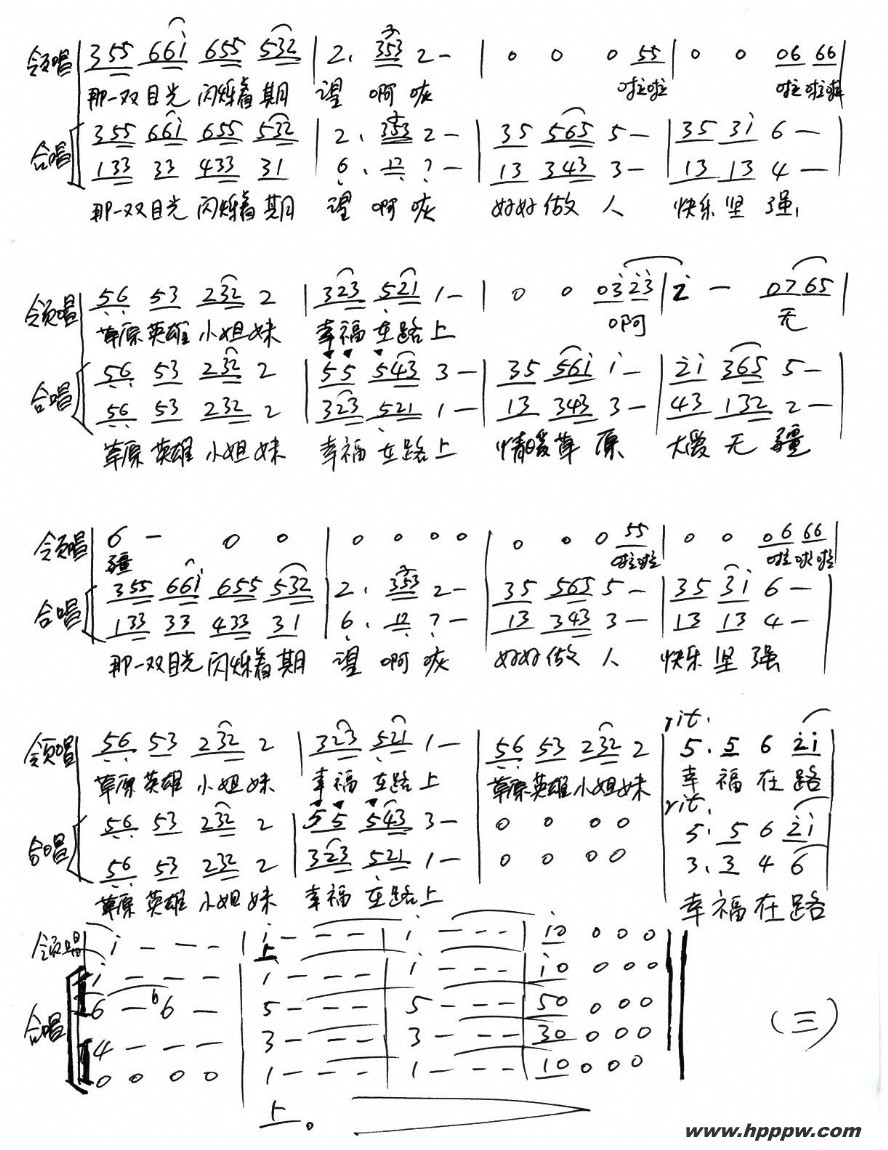 领唱 3 5 5 6 6 i 6 5 5 5 3 2 | 2. 3 5 3 2 — | 0 0 0 5 5 | 0 0 0 6 6 6 |
那一双目光 闪烁着期 望 啊 哎 啦啦 啦啦啦
合唱 3 5 5 6 6 i 6 5 5 5 3 2 | 2. 3 5 3 2 — | 3 5 5 6 5 5 — | 3 5 3 i 6 — |
1 3 3 3 3 4 3 3 3 1 | 6. 1 2 7 — | 1 3 3 4 3 3 — | 1 3 1 3 4 — |
那一双目光 闪烁着期 望 啊 哎 好好做 人 快乐坚 强
领唱 5 6 5 3 2 3 2 2 | 3 2 3 5 2 1 1 — | 0 0 0 3 2 3 | 2 — 0 7 6 5 |
草原 英雄 小姐妹 幸福 在路上 啊 无
合唱 5 6 5 3 2 3 2 2 | 5 5 5 4 3 3 — | 3 5 5 6 i i — | 2 i 3 6 5 5 — |
5 6 5 3 2 3 2 2 | 3 2 3 5 2 1 1 — | 1 3 3 4 3 3 — | 4 3 1 3 2 2 — |
草原 英雄 小姐妹 幸福 在路上 情暖草 原 大爱无 疆
领唱 6 — 0 0 | 0 0 0 0 | 0 0 0 5 5 | 0 0 0 6 6 6 |
疆 啦啦 啦啦啦
合唱 3 5 5 6 6 i 6 5 5 5 3 2 | 2. 3 5 3 2 — | 3 5 5 6 5 5 — | 3 5 3 i 6 — |
1 3 3 3 3 4 3 3 3 1 | 6. 1 2 7 — | 1 3 3 4 3 3 — | 1 3 1 3 4 — |
那一双目光 闪烁着期 望 啊 哎 好好做 人 快乐坚 强
rit.
领唱 5 6 5 3 2 3 2 2 | 3 2 3 5 2 1 1 — | 5 6 5 3 2 3 2 2 | 5. 5 6 2 i |
草原 英雄 小姐妹 幸福 在路上 草原英雄小姐妹 幸 福 在 路
rit.
合唱 5 6 5 3 2 3 2 2 | 5 5 5 4 3 3 — | 0 0 0 0 | 5. 5 6 2 i |
5 6 5 3 2 3 2 2 | 3 2 3 5 2 1 1 — | 0 0 0 0 | 3. 3 4 6 |
草原 英雄 小姐妹 幸福 在路上 幸福在路
领唱 i — — — | i — — — | i — — — | i 0 0 0 0 ‖
上
合唱 i — — — | i — — — | i — — — | i 0 0 0 0
6 — 6 6 — | 5 — — — | 5 — — — | 5 0 0 0 0
4 — — — | 3 — — — | 3 — — — | 3 0 0 0 0
0 0 0 0 | 1 — — — | 1 — — — | 1 0 0 0 0
上。
（三）
www.hpppw.com